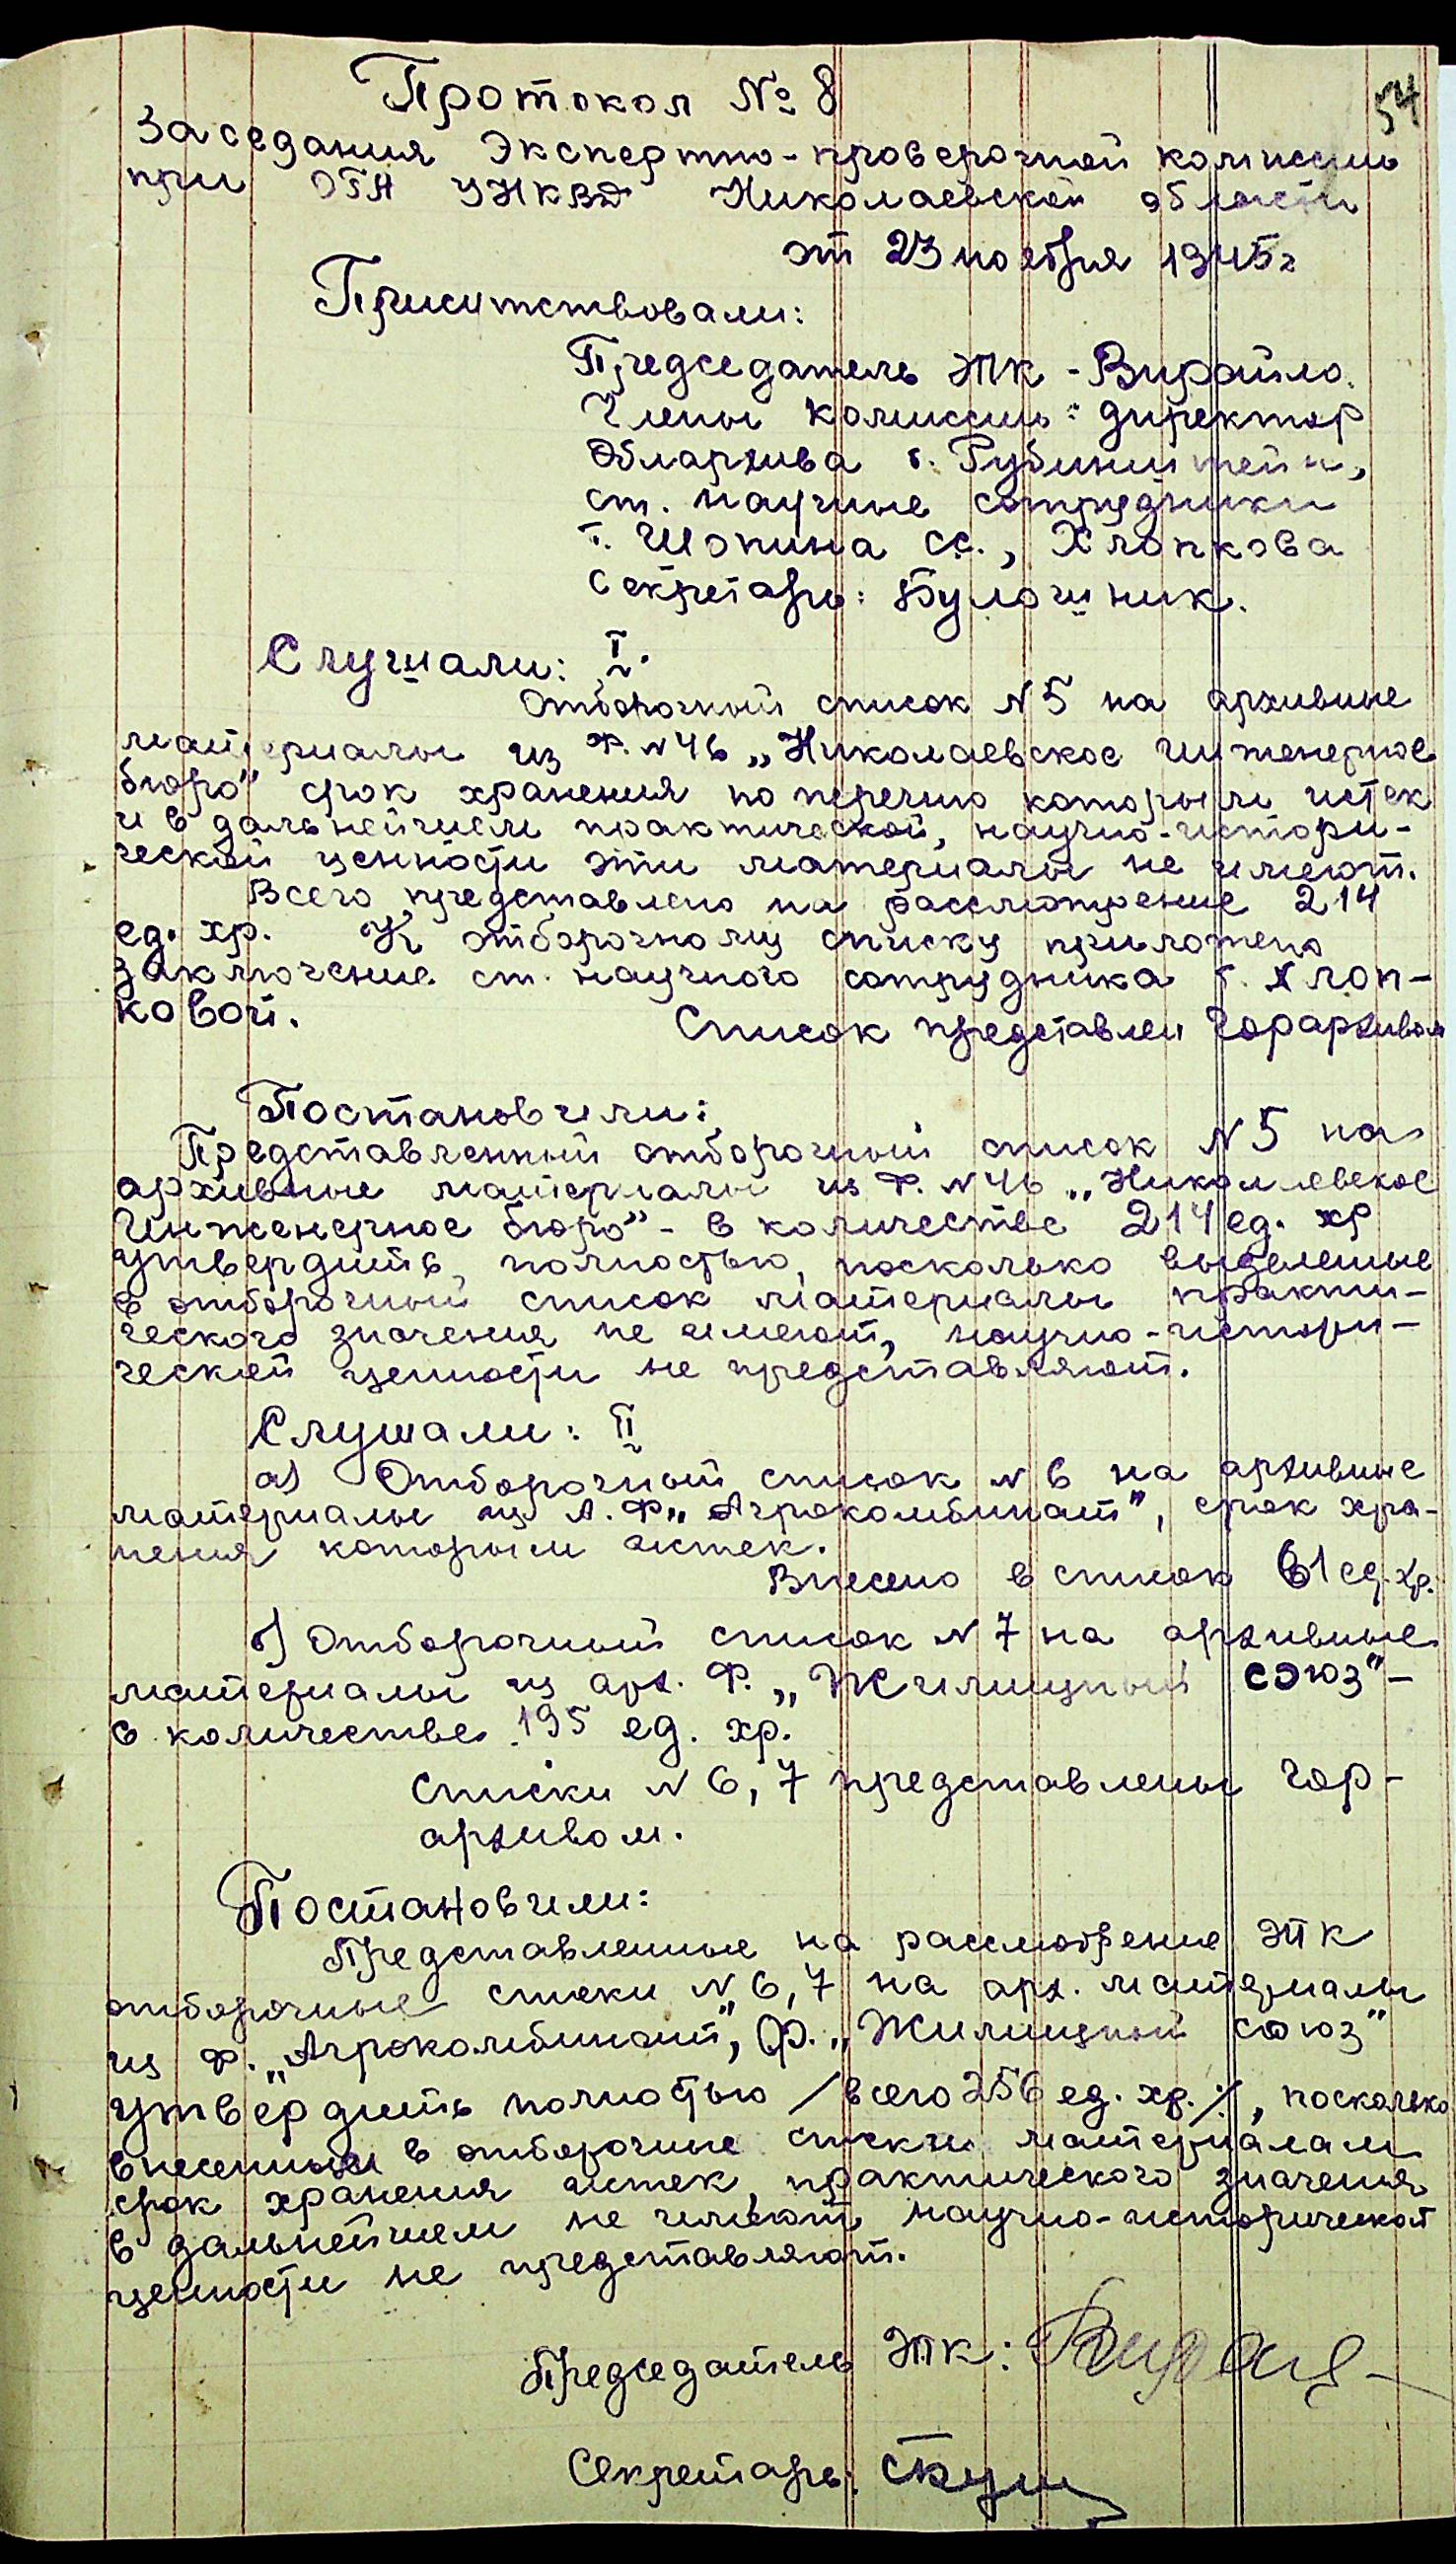 54
Протокол № 8
Заседания Экспертно-проверочной комиссии
при ОГА УНКВД Николаевской области
от 23 ноября 1945 г
Присутствовали:
Председатель ЭПК - Вирайло.
Члены комиссии: директор
Облархива т. Рубинштейн,
ст. научные сотрудники
т. Шопина СС., Хлопкова
Секретарь: Булошник.
Слушали: I.
Отборочный список N 5 на архивные
материалы из Ф. N 46 „Николаевское инженерное
бюро" срок хранения по перечню которым истек
и в дальнейшем практической, научно-истори-
ческой ценности эти материалы не имеют.
Всего представлено на рассмотрение 214
ед. хр. К отборочному списку приложено
заключение ст. научного сотрудника т. Хлоп-
ковой.
Список представлен Горархивом
Постановили:
Представленный отборочный список N 5 на
архивные материалы из Ф. N 46 „Николаевское
Инженерное бюро" - в количестве 214 ед. хр
утвердить полностью, посколько выделенные
в отборочный список материалы практи-
ческого значения не имеют, научно-истори-
ческой ценности не представляют.
Слушали: II
а) Отборочный список N 6 на архивные
материалы из А. Ф „Агрокомбинат", срок хра-
нения которым истек.
Внесено в список 61 ед. хр.
б) Отборочный список N 7 на архивные
материалы из арх. Ф. „Жилищный союз" -
в количестве 195 ед. хр.
Списки N 6, 7 представлены Гор-
архивом.
Постановили:
Представленные на рассмотрение ЭПК
отборочные списки N 6, 7 на арх. материалы
из Ф. „Агрокомбинат", Ф. „Жилищный союз"
утвердить полностью /всего 256 ед. хр./, посколько
внесенным в отборочные списки материалам
срок хранения истек, практического значения
в дальнейшем не имеют, научно-исторической
ценности не представляют.
Председатель ЭПК:
Секретарь: